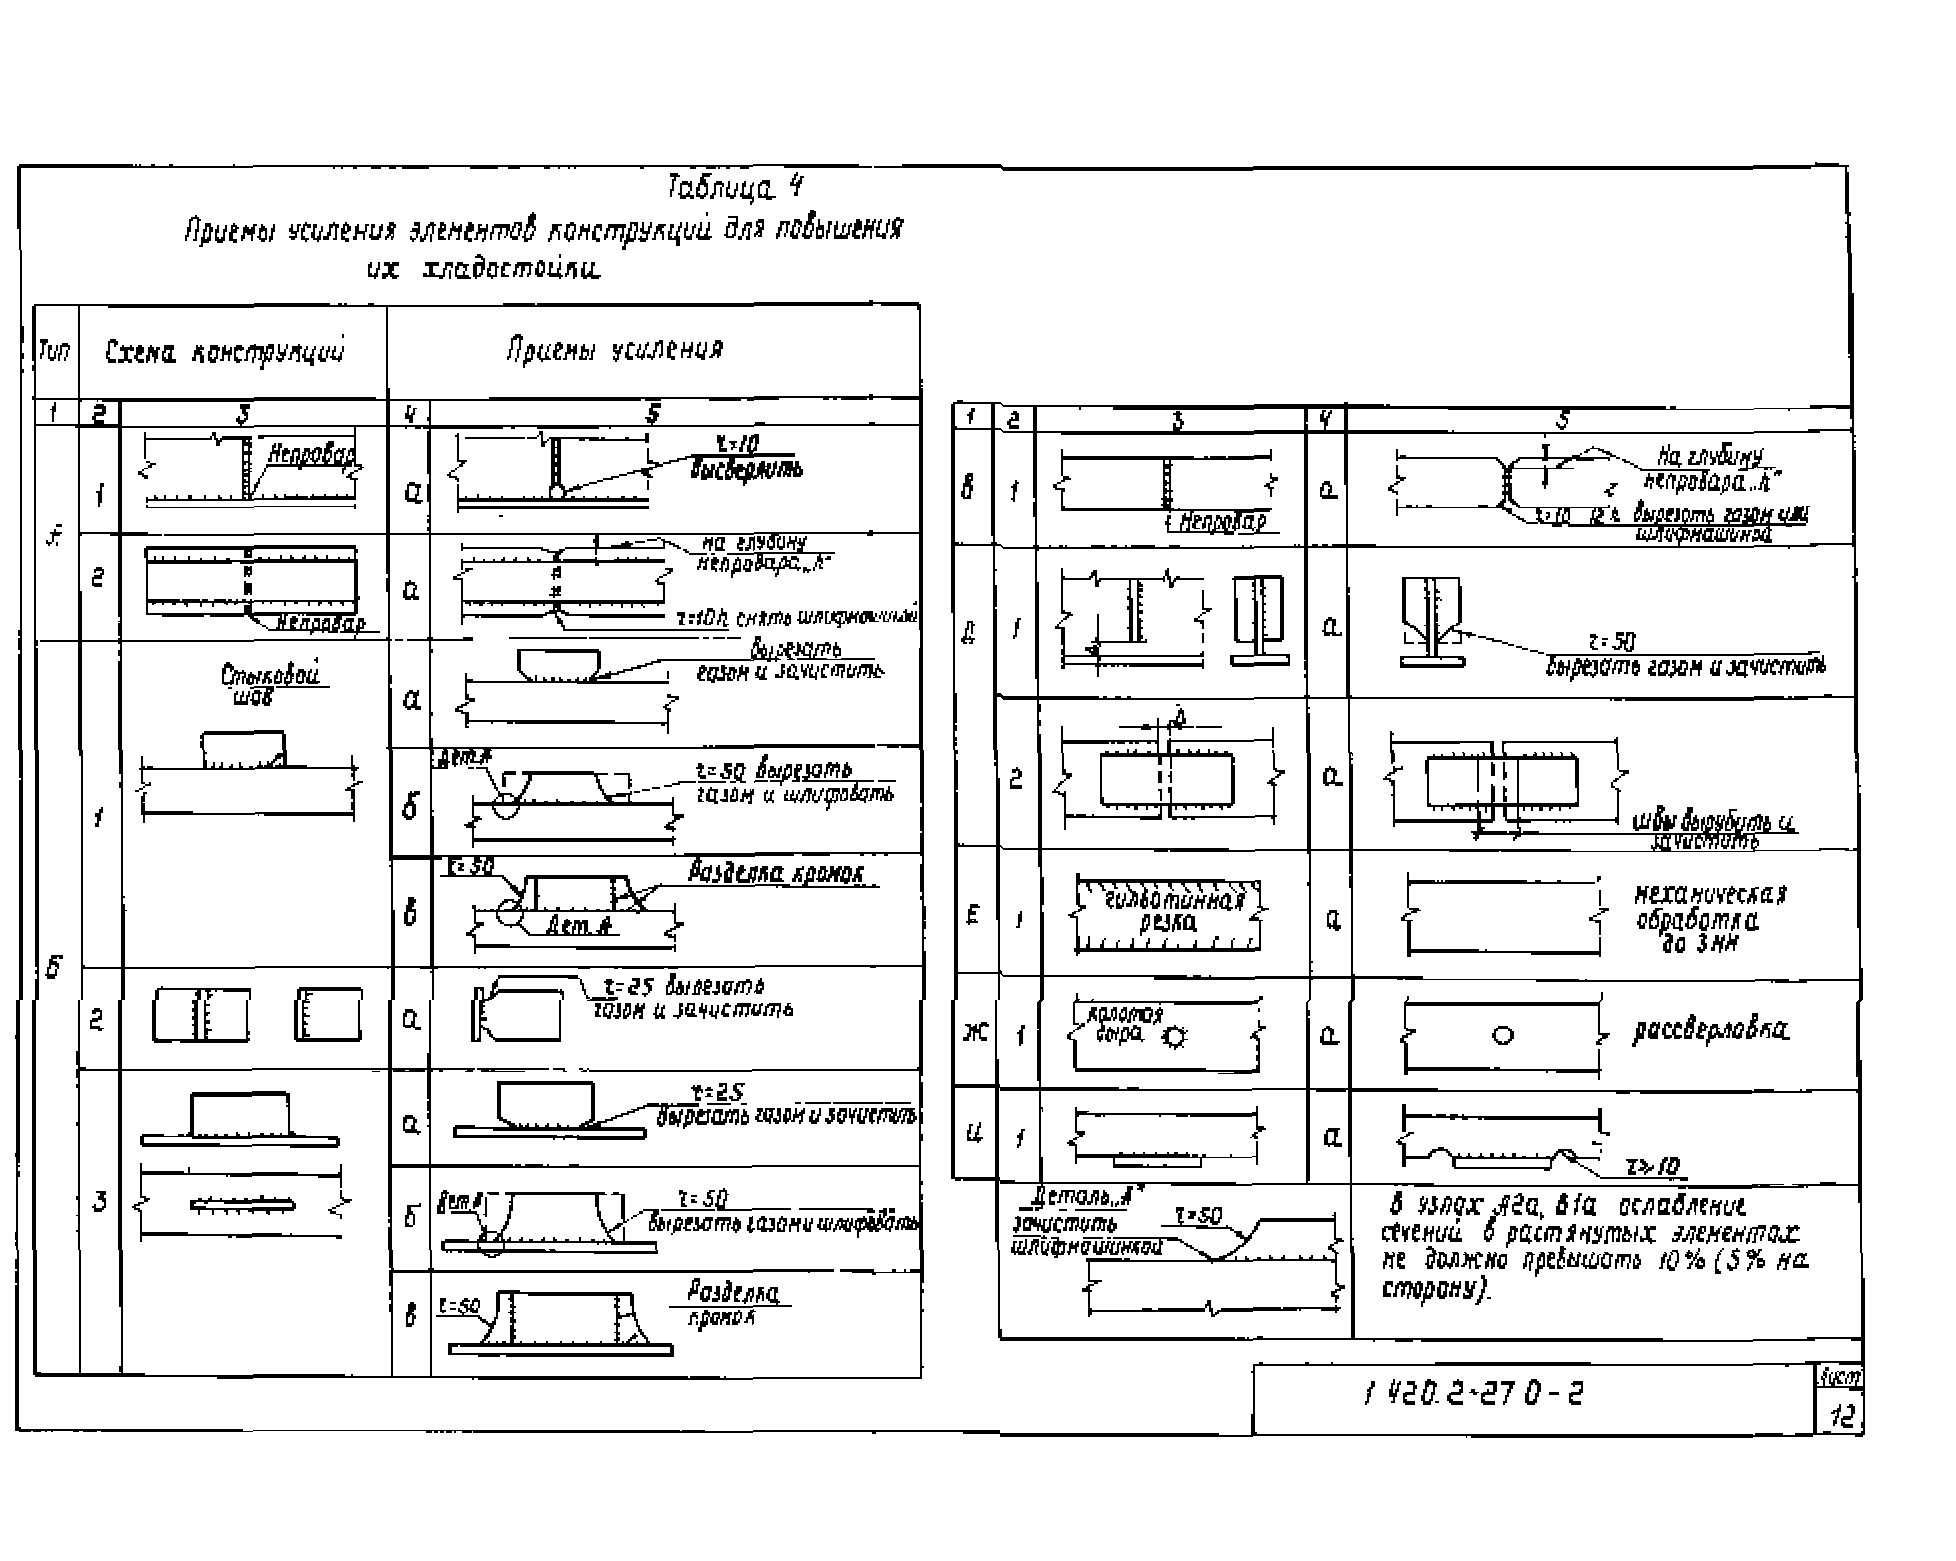 Таблица 4
Приемы усиления элементов конструкций для повышения
их хладостойки
Тип
Схема конструкций
Приемы усиления
1 2 3 4 5
А
1
Непровар
а
r=10
высверлить
2
Непровар
а
на глубину
непровара „h"
r=10h снять шлифмашиной
Б
1
Стыковой
шов
а
вырезать
газом и зачистить
б
Дет. А
r=50 вырезать
газом и шлифовать
в
r=50
Разделка кромок
Дет. А
2
а
r=25 вырезать
газом и зачистить
3
а
r=25
вырезать газом и зачистить
б
Дет. А
r=50
вырезать газом и шлифовать
в
r=50
Разделка
кромок
1 2 3 4 5
В
1
Непровар
а
На глубину
непровара „h"
вырезать газом или
шлифмашиной
Д
1
а
r=50
вырезать газом и зачистить
2
а
швы вырубить и
зачистить
Е
1
гильотинная
резка
а
механическая
обработка
до 3мм
Ж
1
колотая
дыра
а
рассверловка
И
1
а
r≥10
Деталь „А"
зачистить
шлифмашинкой
r=50
В узлах А2а, В1а ослабление
сечений в растянутых элементах
не должно превышать 10% (5% на
сторону).
1 420.2-27 0-2
Лист
12